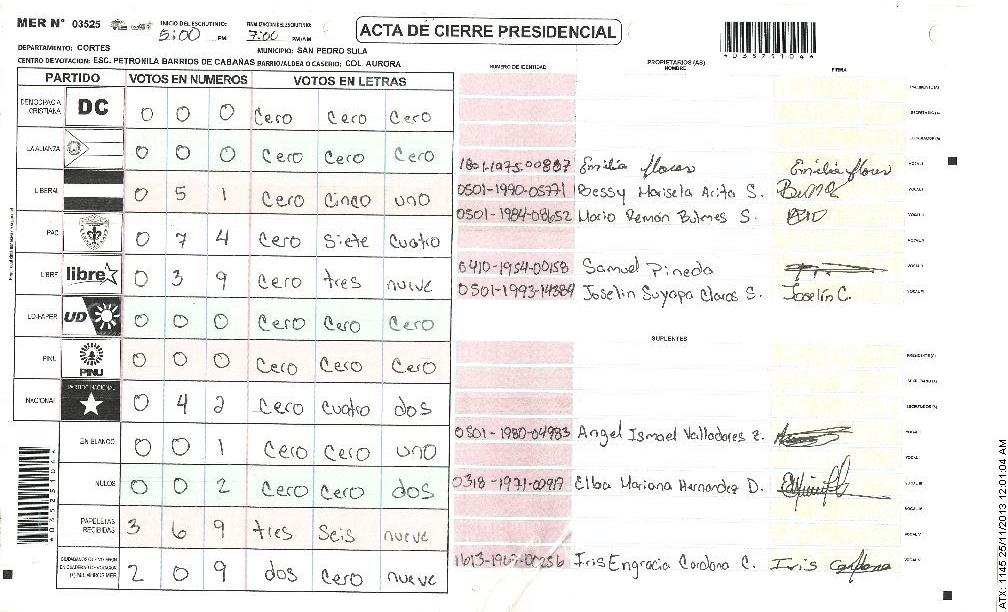 MER N° 03525
INICIO DEL ESCRUTINIO: 5:00 PM
FINALIZACION DEL ESCRUTINIO: 7:00 PM/AM
ACTA DE CIERRE PRESIDENCIAL
DEPARTAMENTO: CORTES
MUNICIPIO: SAN PEDRO SULA
CENTRO DE VOTACION: ESC. PETRONILA BARRIOS DE CABAÑAS BARRIO/ALDEA O CASERIO: COL AURORA
PARTIDO VOTOS EN NUMEROS VOTOS EN LETRAS
NUMERO DE IDENTIDAD PROPIETARIOS (AS) NOMBRE FIRMA
DEMOCRACIA CRISTIANA DC 0 0 0 Cero Cero Cero
LA ALIANZA 0 0 0 Cero Cero Cero
LIBERAL 0 5 1 Cero Cinco uno
PAC 0 7 4 Cero Siete Cuatro
LIBRE libre 0 3 9 Cero tres nueve
UD-FAPER UD 0 0 0 Cero Cero Cero
PINU PINU 0 0 0 Cero Cero Cero
NACIONAL PARTIDO NACIONAL 0 4 2 Cero Cuatro dos
EN BLANCO 0 0 1 Cero Cero uno
NULOS 0 0 2 Cero Cero dos
PAPELETAS RECIBIDAS 3 6 9 tres Seis nueve
2 0 9 dos Cero nueve
1801-1975-00887 Emilia flores Emilia flores
0501-1990-05771 Bessy Marisela Arita S.
0501-1984-08652 Mario Ramon Bulnes S.
0410-1954-00158 Samuel Pineda
0501-1993-14384 Joselin Suyapa Claros S. Joselin C.
SUPLENTES
0501-1980-04983 Angel Ismael Valladares Z.
0318-1971-00917 Elba Mariana Hernandez D.
1613-1962-00256 Iris Engracia Cardona C. Iris Cardona
ATX: 1145 25/11/2013 12:01:04 AM